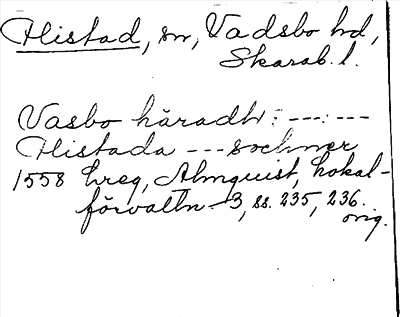 Flistad, sn, Vadsbo hd,
Skarab. l.
Vasbo häradh: --- : ---
Flistada --- sochner
1558 hreg, Almquist, Lokal-
förvaltn. 3, ss. 235, 236.
orig.